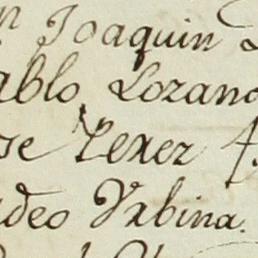 n Joaquin
ablo Lozano
se Perez
adeo Vrbina.